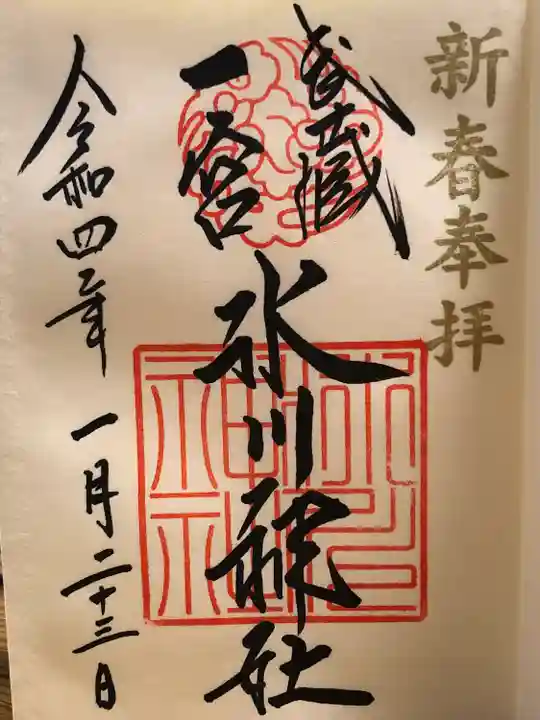 新春奉拝
武蔵
一宮
氷川神社
令和四年 一月二十三日